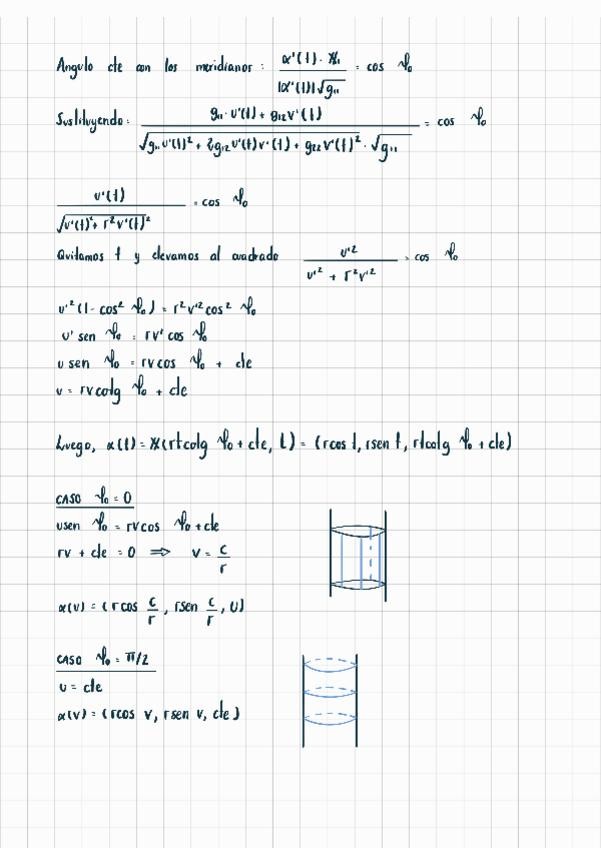 Angulo cte con los meridianos: α'(t)·𝕏₁ / |α'(t)|√g₁₁ = cos ψ₀
Sustituyendo: g₁₁·u'(t) + g₁₂v'(t) / √(g₁₁u'(t)² + 2g₁₂u'(t)v'(t) + g₂₂v'(t)²)·√g₁₁ = cos ψ₀
u'(t) / √(u'(t)² + r²v'(t)²) = cos ψ₀
Quitamos t y elevamos al cuadrado u'² / u'² + r²v'² = cos ψ₀
u'²(1-cos² ψ₀) = r²v'²cos² ψ₀
u' sen ψ₀ = rv' cos ψ₀
u sen ψ₀ = rv cos ψ₀ + cte
u = rv cotg ψ₀ + cte
Luego, α(t) = 𝕏(rt cotg ψ₀ + cte, t) = (r cos t, r sen t, rt cotg ψ₀ + cte)
CASO ψ₀ = 0
u sen ψ₀ = rv cos ψ₀ + cte
rv + cte = 0 ⟹ v = c/r
α(u) = (r cos c/r, r sen c/r, u)
CASO ψ₀ = π/2
u = cte
α(v) = (r cos v, r sen v, cte)